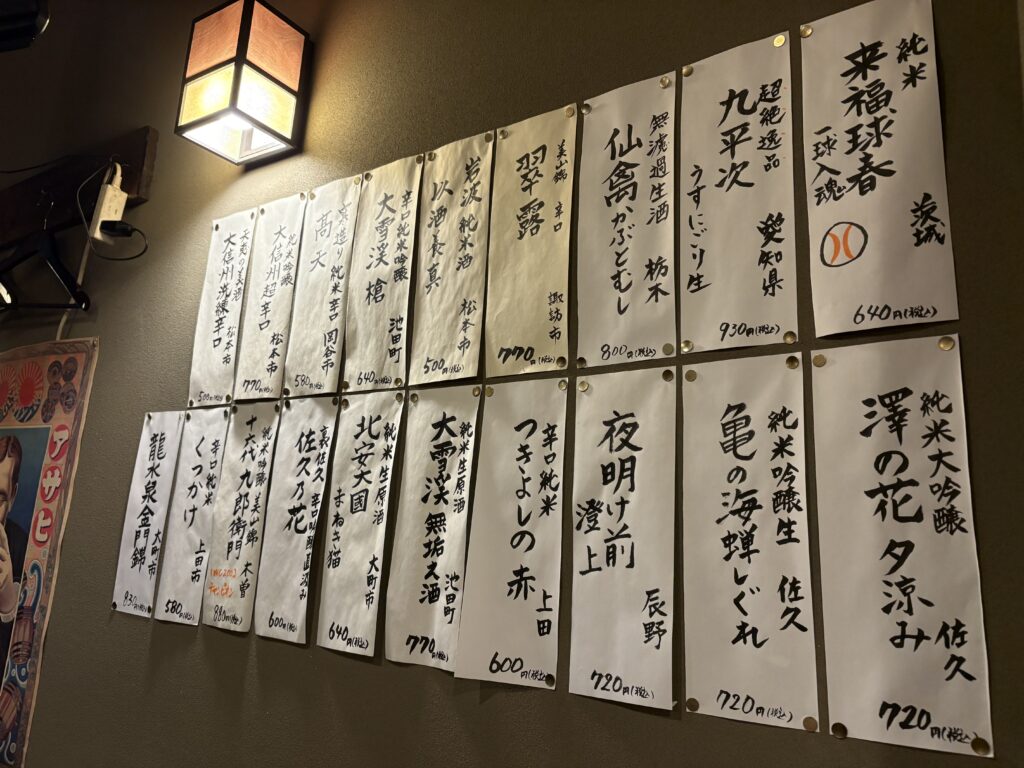 純米
来福球春
一球入魂
茨城
640円(税込)
超絶逸品
九平次
うすにごり生
愛知県
930円(税込)
無濾過生酒 栃木
仙禽かぶとむし
800円(税込)
美山錦 辛口 諏訪市
翠露
770円(税込)
岩波 純米酒 松本市
以酒長真
500円(税込)
辛口純米吟醸 池田町
大雪渓 槍
640円(税込)
造り純米辛口 岡谷市
高天
580円(税込)
純米吟醸
大信州超辛口 松本市
770円(税込)
天恵の美酒
大信州洗練辛口 松本市
500円(税込)
純米大吟醸 佐久
澤の花 夕涼み
720円(税込)
純米吟醸生 佐久
亀の海蝉しぐれ
720円(税込)
夜明け前 辰野
澄上
720円(税込)
辛口純米 上田
つきよしの 赤
600円(税込)
純米生原酒 池田町
大雪渓 無垢
770円(税込)
純米生原酒 大町市
北安大国 まねき猫
640円(税込)
裏佐久 辛口吟醸直汲み
佐久乃花
600円(税込)
純米吟醸 美山錦 木曽
十六代九郎衛門
チャンピオン
880円(税込)
辛口純米 上田市
くっかけ
580円(税込)
龍水泉金門錦 大町市
830円(税込)
アサヒ